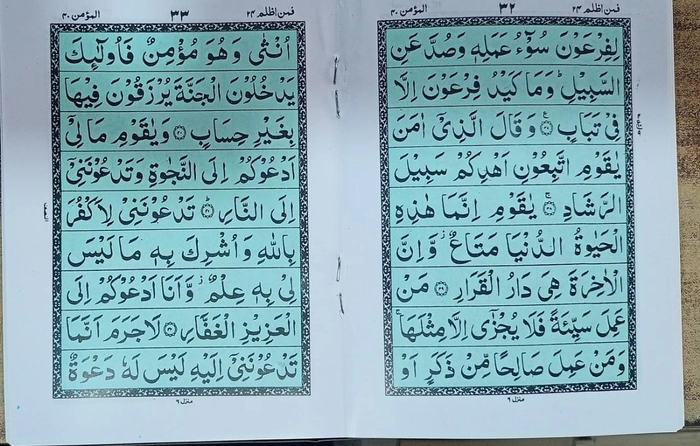 المؤمن ٤٠
٣٢
فمن اظلم ٢٤
لِفِرْعَوْنَ سُوْٓءُ عَمَلِهٖ وَصُدَّ عَنِ
السَّبِيْلِ ؕ وَمَا كَيْدُ فِرْعَوْنَ اِلَّا
فِيْ تَبَابٍ ۟ وَقَالَ الَّذِيْۤ اٰمَنَ
يٰقَوْمِ اتَّبِعُوْنِ اَهْدِكُمْ سَبِيْلَ
الرَّشَادِ ۟ يٰقَوْمِ اِنَّمَا هٰذِهِ
الْحَيٰوةُ الدُّنْيَا مَتَاعٌ ؗ وَّاِنَّ
الْاٰخِرَةَ هِيَ دَارُ الْقَرَارِ ۟ مَنْ
عَمِلَ سَيِّئَةً فَلَا يُجْزٰۤى اِلَّا مِثْلَهَا ۚ
وَمَنْ عَمِلَ صَالِحًا مِّنْ ذَكَرٍ اَوْ
منزل ٦
المؤمن ٤٠
٣٣
فمن اظلم ٢٤
اُنْثٰى وَهُوَ مُؤْمِنٌ فَاُولٰٓئِكَ
يَدْخُلُوْنَ الْجَنَّةَ يُرْزَقُوْنَ فِيْهَا
بِغَيْرِ حِسَابٍ ۟ وَيٰقَوْمِ مَا لِيْۤ
اَدْعُوْكُمْ اِلَى النَّجٰوةِ وَتَدْعُوْنَنِيْۤ
اِلَى النَّارِ ۟ تَدْعُوْنَنِيْ لِاَكْفُرَ
بِاللّٰهِ وَاُشْرِكَ بِهٖ مَا لَيْسَ
لِيْ بِهٖ عِلْمٌ ؗ وَّاَنَا اَدْعُوْكُمْ اِلَى
الْعَزِيْزِ الْغَفَّارِ ۟ لَا جَرَمَ اَنَّمَا
تَدْعُوْنَنِيْۤ اِلَيْهِ لَيْسَ لَهٗ دَعْوَةٌ
منزل ٦